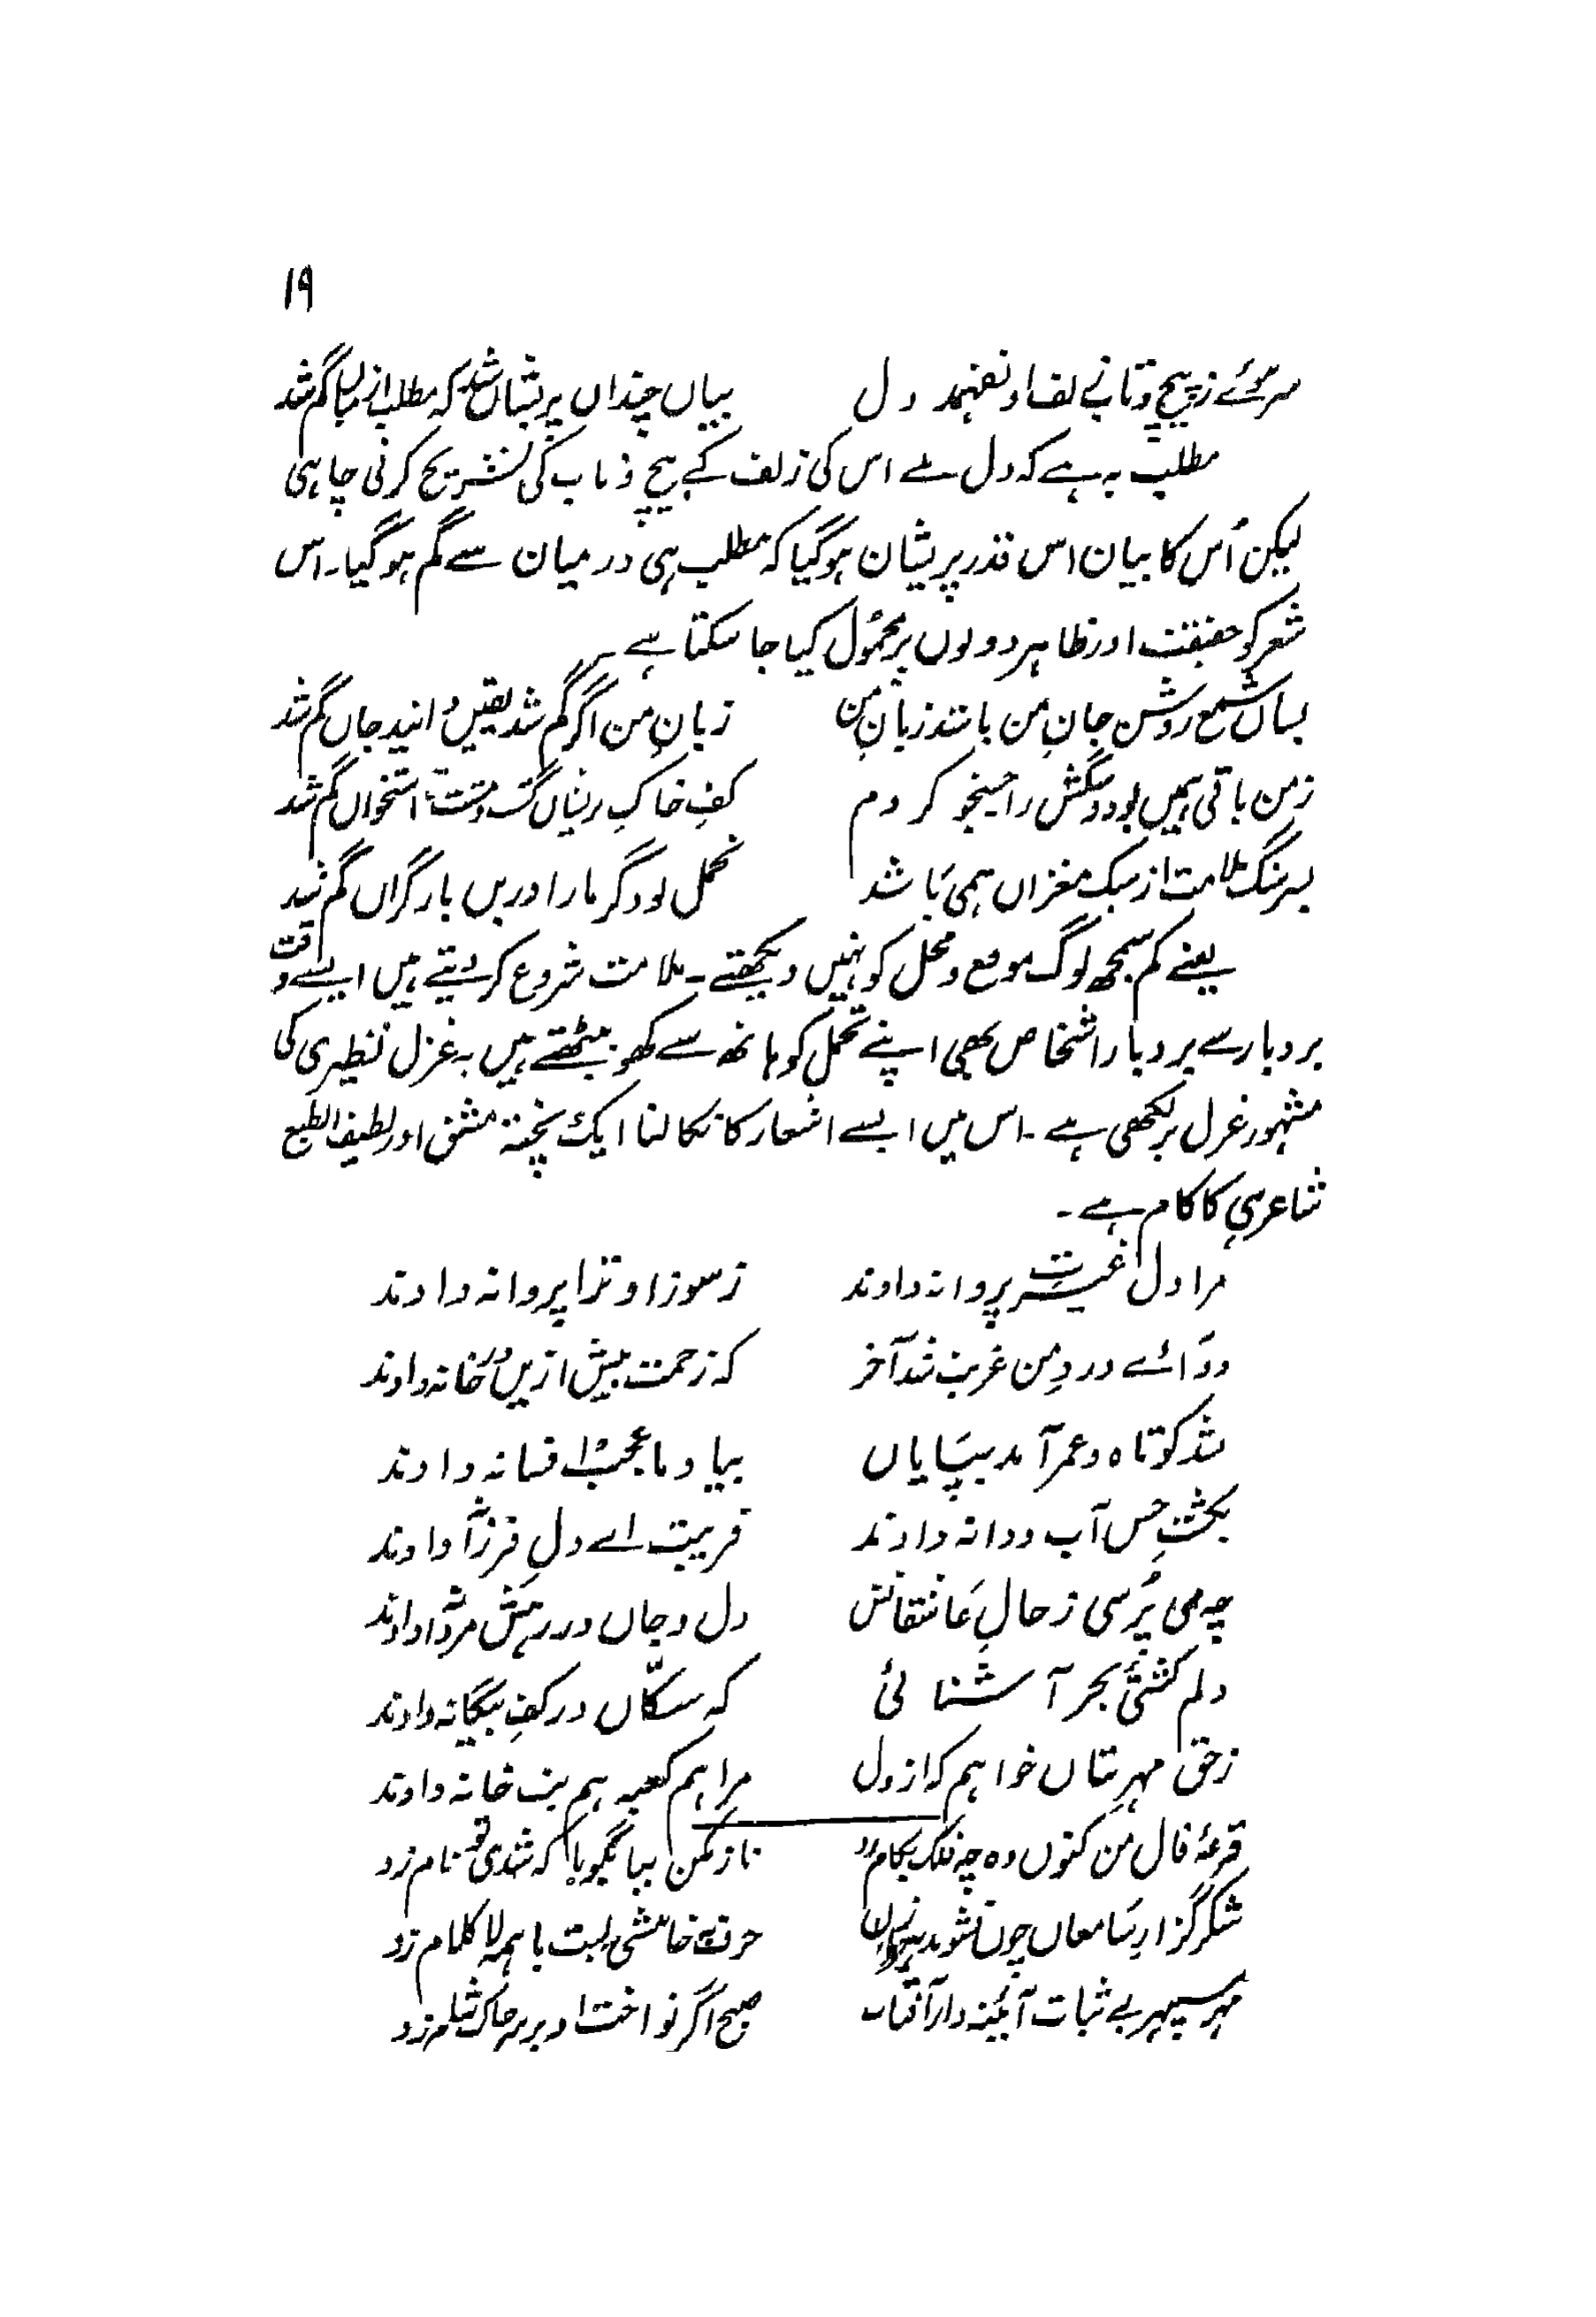 ۱۹
سرموئے زپیچ و تابِ زلف او نفہمد دل بیاں چنداں پریشاں شد کہ مطلب از میاں گم شد
مطلب یہ ہے کہ دل نے اس کی زلف کے پیچ و تاب کی تشریح کرنی چاہی
لیکن اُس کا بیان اس قدر پریشان ہوگیا کہ مطلب ہی درمیان سے گم ہوگیا۔ اس
شعر کو حقیقت اور ظاہر دونوں پر محمُول کیا جا سکتا ہے۔
بساں شمع روشن جانِ من باشد زبانِ من زبانِ من اگر گم شد یقیں دانید جاں گم شد
زمن باقی ہمیں بود و سگش را جستجو کردم کفِ خاکِ پریشاں گشت و مشت استخواں گم شد
بسر سنگ ملامت از سبک مغزاں ہمی بَاشد تحمل بود گر ما را دریں بار گراں گم شد
یعنے کم سمجھ لوگ موقع و محل کو نہیں دیکھتے۔ ملامت شروع کر دیتے ہیں ایسے وقت
بردبار سے بردبار اشخاص بھی اپنے تحمل کو ہاتھ سے کھو بیٹھتے ہیں یہ غزل نظیری کی
مشہور غزل پر لکھی ہے۔ اس میں ایسے اشعار کا نکالنا ایک پختہ مشق اور لطیف الطبع
شاعر ہی کا کام ہے۔
مرا دل غیرت پروانہ دادند ز سوز او ترا پروا نہ دادند
دوَائے دردِ من غربت شد آخر کہ زحمت بیش ازیں در خانہ دادند
شد کوتاہ و عمر آمد بپَایاں بیا و ما عجب افسانہ دادند
بکشتِ حُسن آب و دانہ دادند فریبت اے دلِ فرزانہ دادند
چہ می پُرسی ز حالِ عَاشقانش دل و جاں در رہش مردانہ دادند
دلم کشتیٔ بحر آشنائی کہ سکّاں در کفِ بیگانہ دادند
زحق مہرِ بتاں خواہم کہ از دل مرا ہم کعبہ ہم بت خانہ دادند
قرعۂ فال من کنوں وہ چہ فلک بکام زد ناز مکن بیا بگو با کہ شدی تو نام زد
شکر گزارِ سَامعاں چوں نشود حرف خامشی بست با ہمہ لا کلام زد
مہر سپہر بے ثبات آئینہ دار آفتاب صبح اگر نواخت او بر سر خاک شام زد